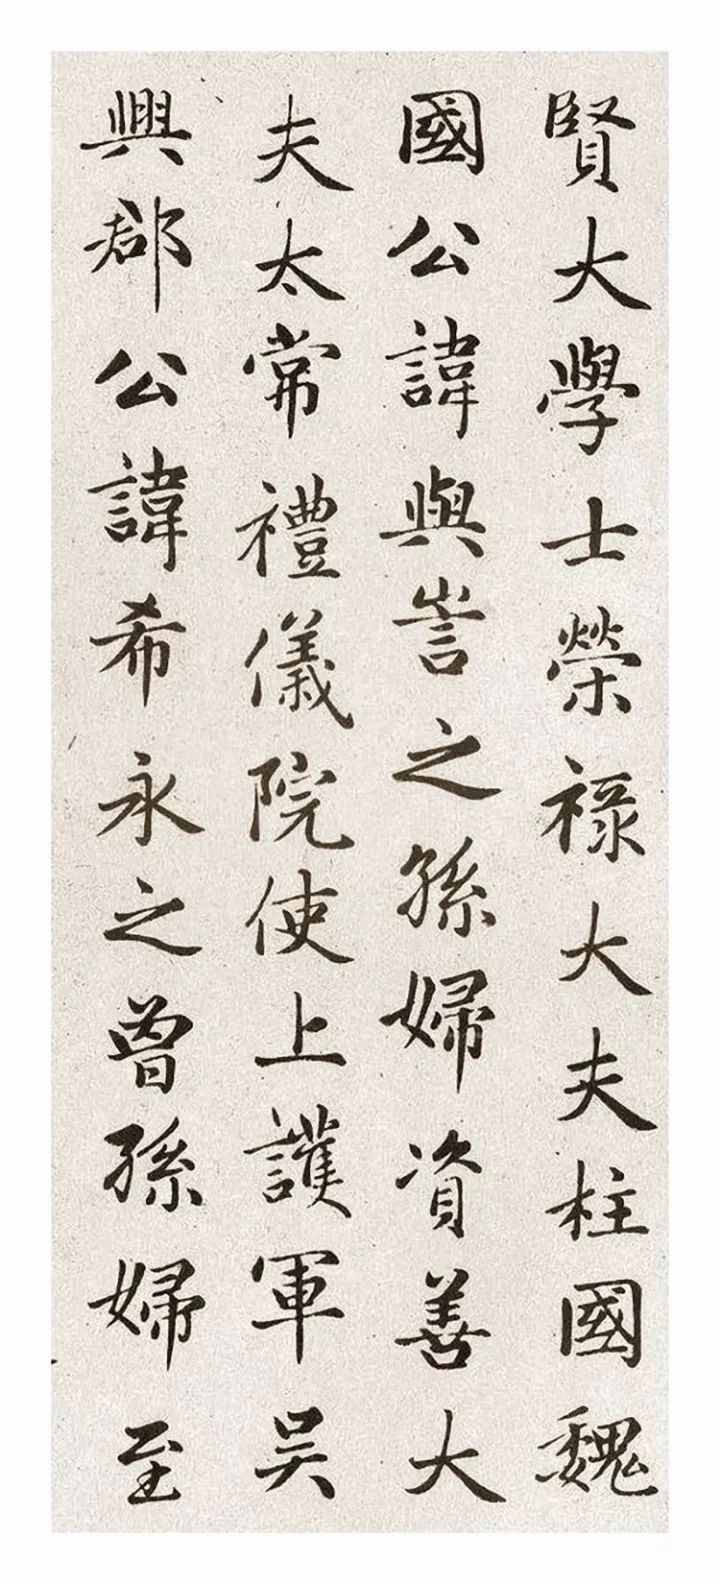 賢大學士榮祿大夫柱國魏
國公諱與訔之孫婦資善大
夫太常禮儀院使上護軍吳
興郡公諱希永之曾孫婦至